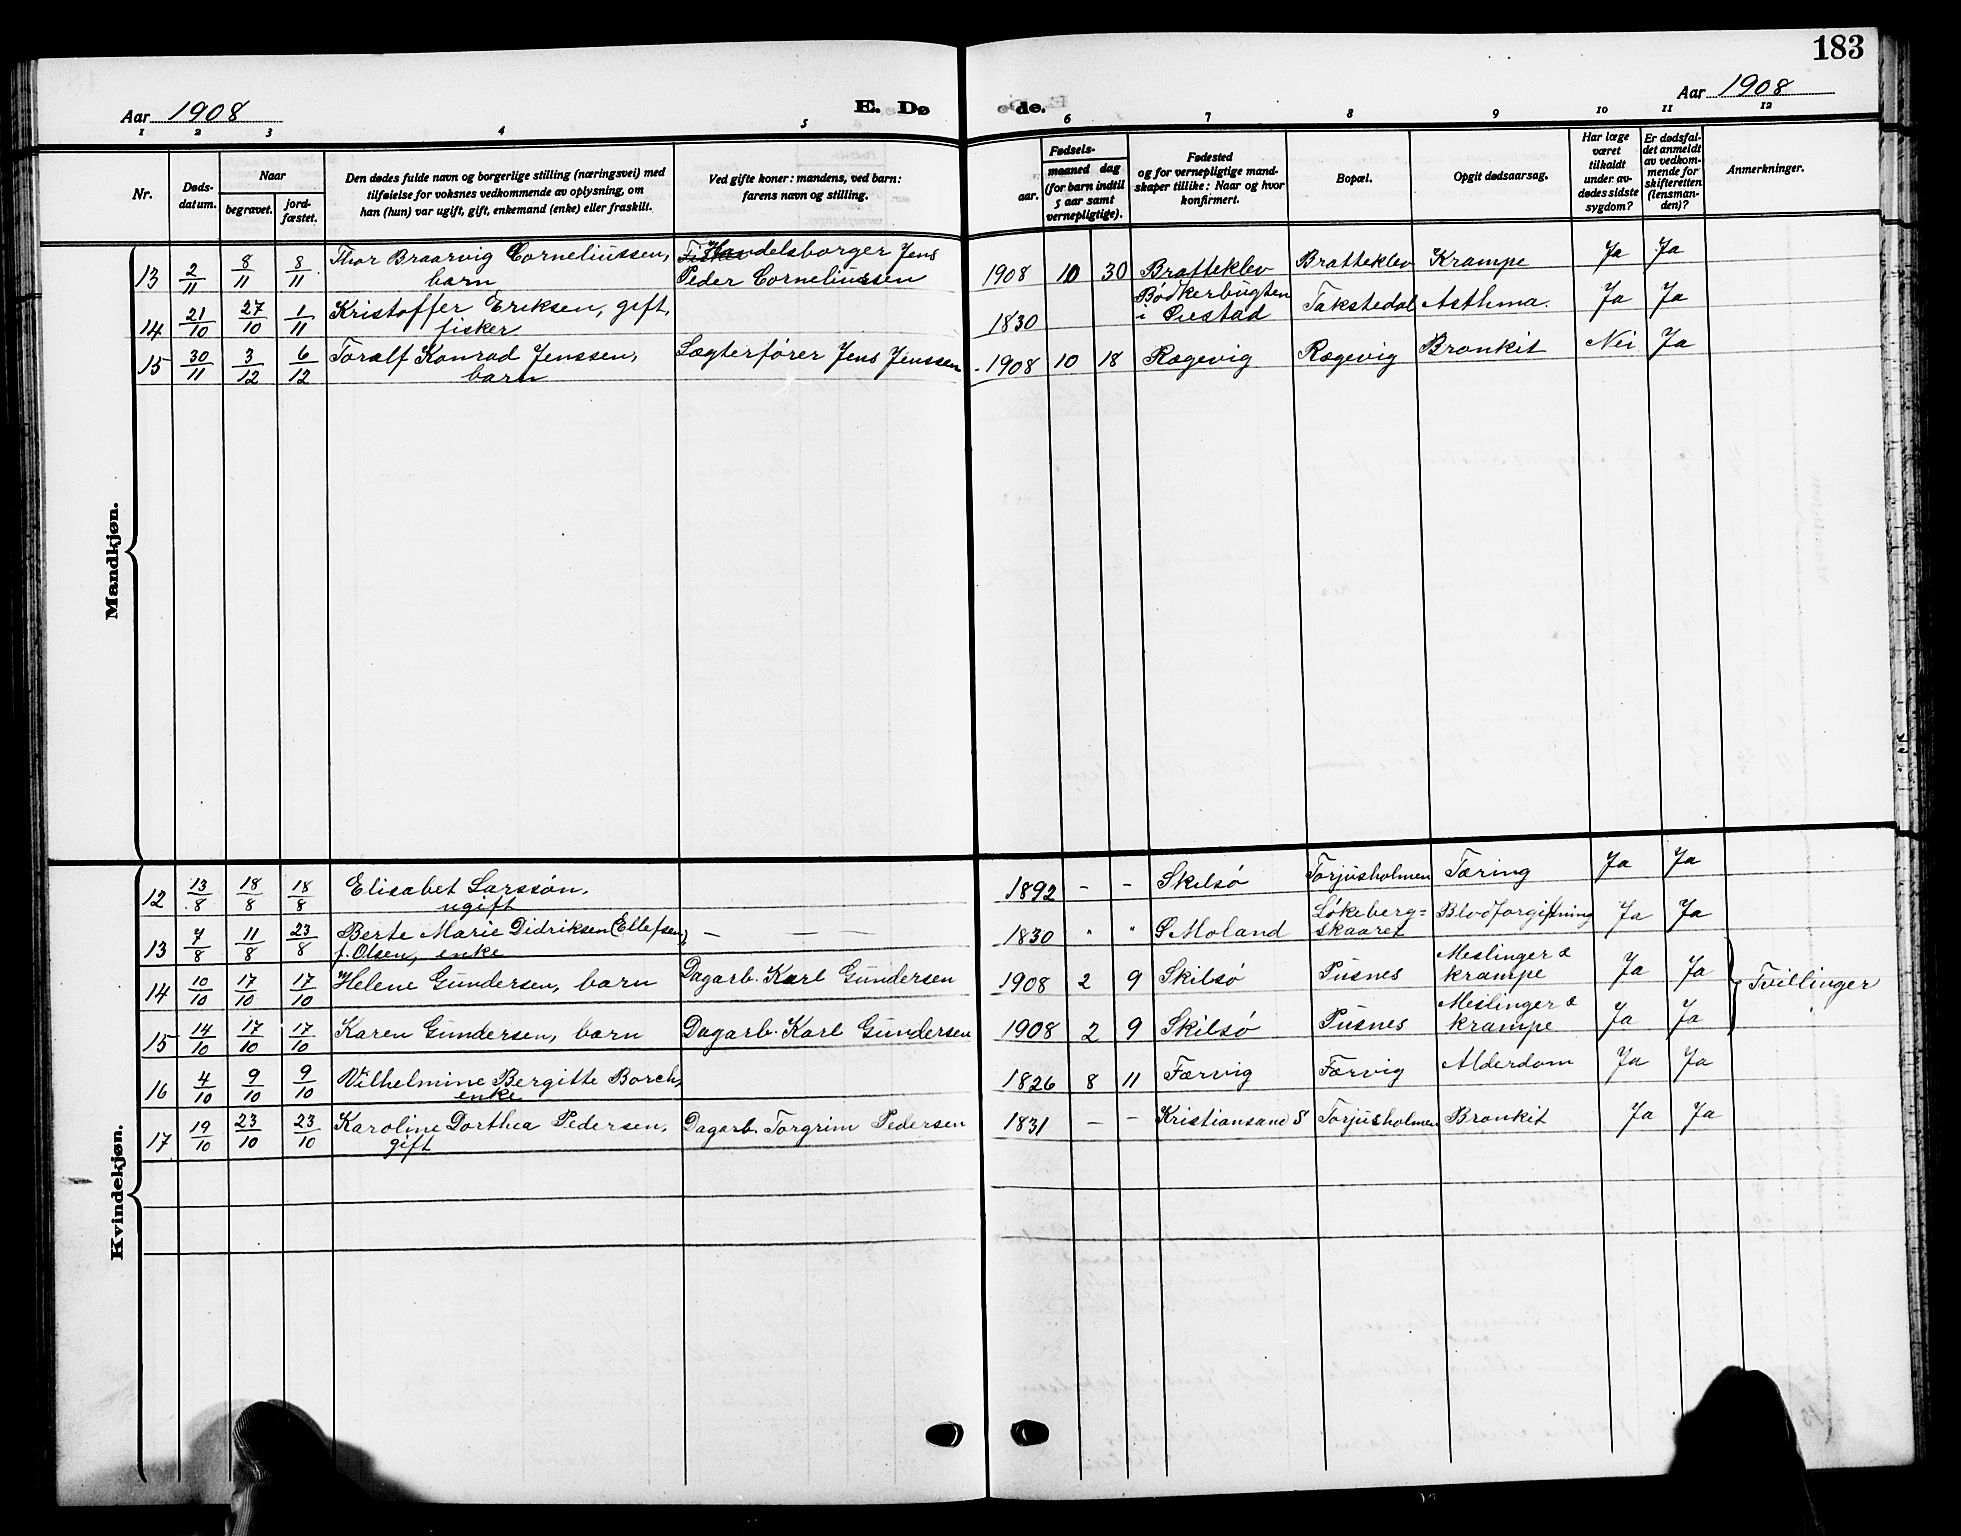 183
Aar 1908
E. Dø
de.
Aar 1908
1 2 3 4 5 6 7 8 9 10 11 12
Nr.
Døds-
datum.
Naar
begravet.
jord-
fæstet.
Den dødes fulde navn og borgerlige stilling (næringsvei) med
tilføielse for voksnes vedkommende av oplysning, om
han (hun) var ugift, gift, enkemand (enke) eller fraskilt.
Ved gifte koner: mandens, ved barn:
farens navn og stilling.
Fødsels-
aar.
maaned dag
(for barn indtil
5 aar samt
vernepligtige).
Fødested
og for vernepligtige mand-
skaper tillike: Naar og hvor
konfirmert.
Bopæl.
Opgit dødsaarsag.
Har læge
været
tilkaldt
under av-
dødes sidste
sygdom?
Er dødsfal-
det anmeldt
av vedkom-
mende for
skifteretten
(lensman-
den)?
Anmerkninger.
Mandkjøn.
13 2/11 8/11 8/11 Thor Braarvig Corneliussen, Fisker Handelsborger Jens
barn Peder Corneliussen 1908 10 30 Bratteklev Bratteklev Krampe Ja Ja
14 21/10 27/10 1/11 Kristoffer Eriksen, gift, Bødkerbugten
fisker 1830 i Øiestad Takstedal Asthma. Ja Ja
15 30/11 3/12 6/12 Toralf Konrad Jenssen, Lægterfører Jens Jenssen 1908 10 18 Rægevig Rægevig Bronkit Nei Ja
barn
Kvindekjøn.
12 13/8 18/8 18/8 Elisabet Larssøn, 1892 - - Skilsø Torjusholmen Tæring Ja Ja
ugift
13 7/8 11/8 23/8 Berte Marie Didriksen (Ellefsen) — — — 1830 " " S Moland Løkeberg= Blodforgiftning Ja Ja
f. Olsen, enke skaaret
14 10/10 17/10 17/10 Helene Gundersen, barn Dagarb. Karl Gundersen 1908 2 9 Skilsø Pusnes Meslinger &
krampe Ja Ja
Tvillinger
15 14/10 17/10 17/10 Karen Gundersen, barn Dagarb. Karl Gundersen 1908 2 9 Skilsø Pusnes Meslinger &
krampe Ja Ja
16 4/10 9/10 9/10 Vilhelmine Bergitte Borch, 1826 8 11 Færvig Færvig Alderdom Ja Ja
enke
17 19/10 23/10 23/10 Karoline Dorthea Pedersen, Dagarb. Torgrim Pedersen 1831 - - Kristiansand S Torjusholmen Bronkit Ja Ja
gift